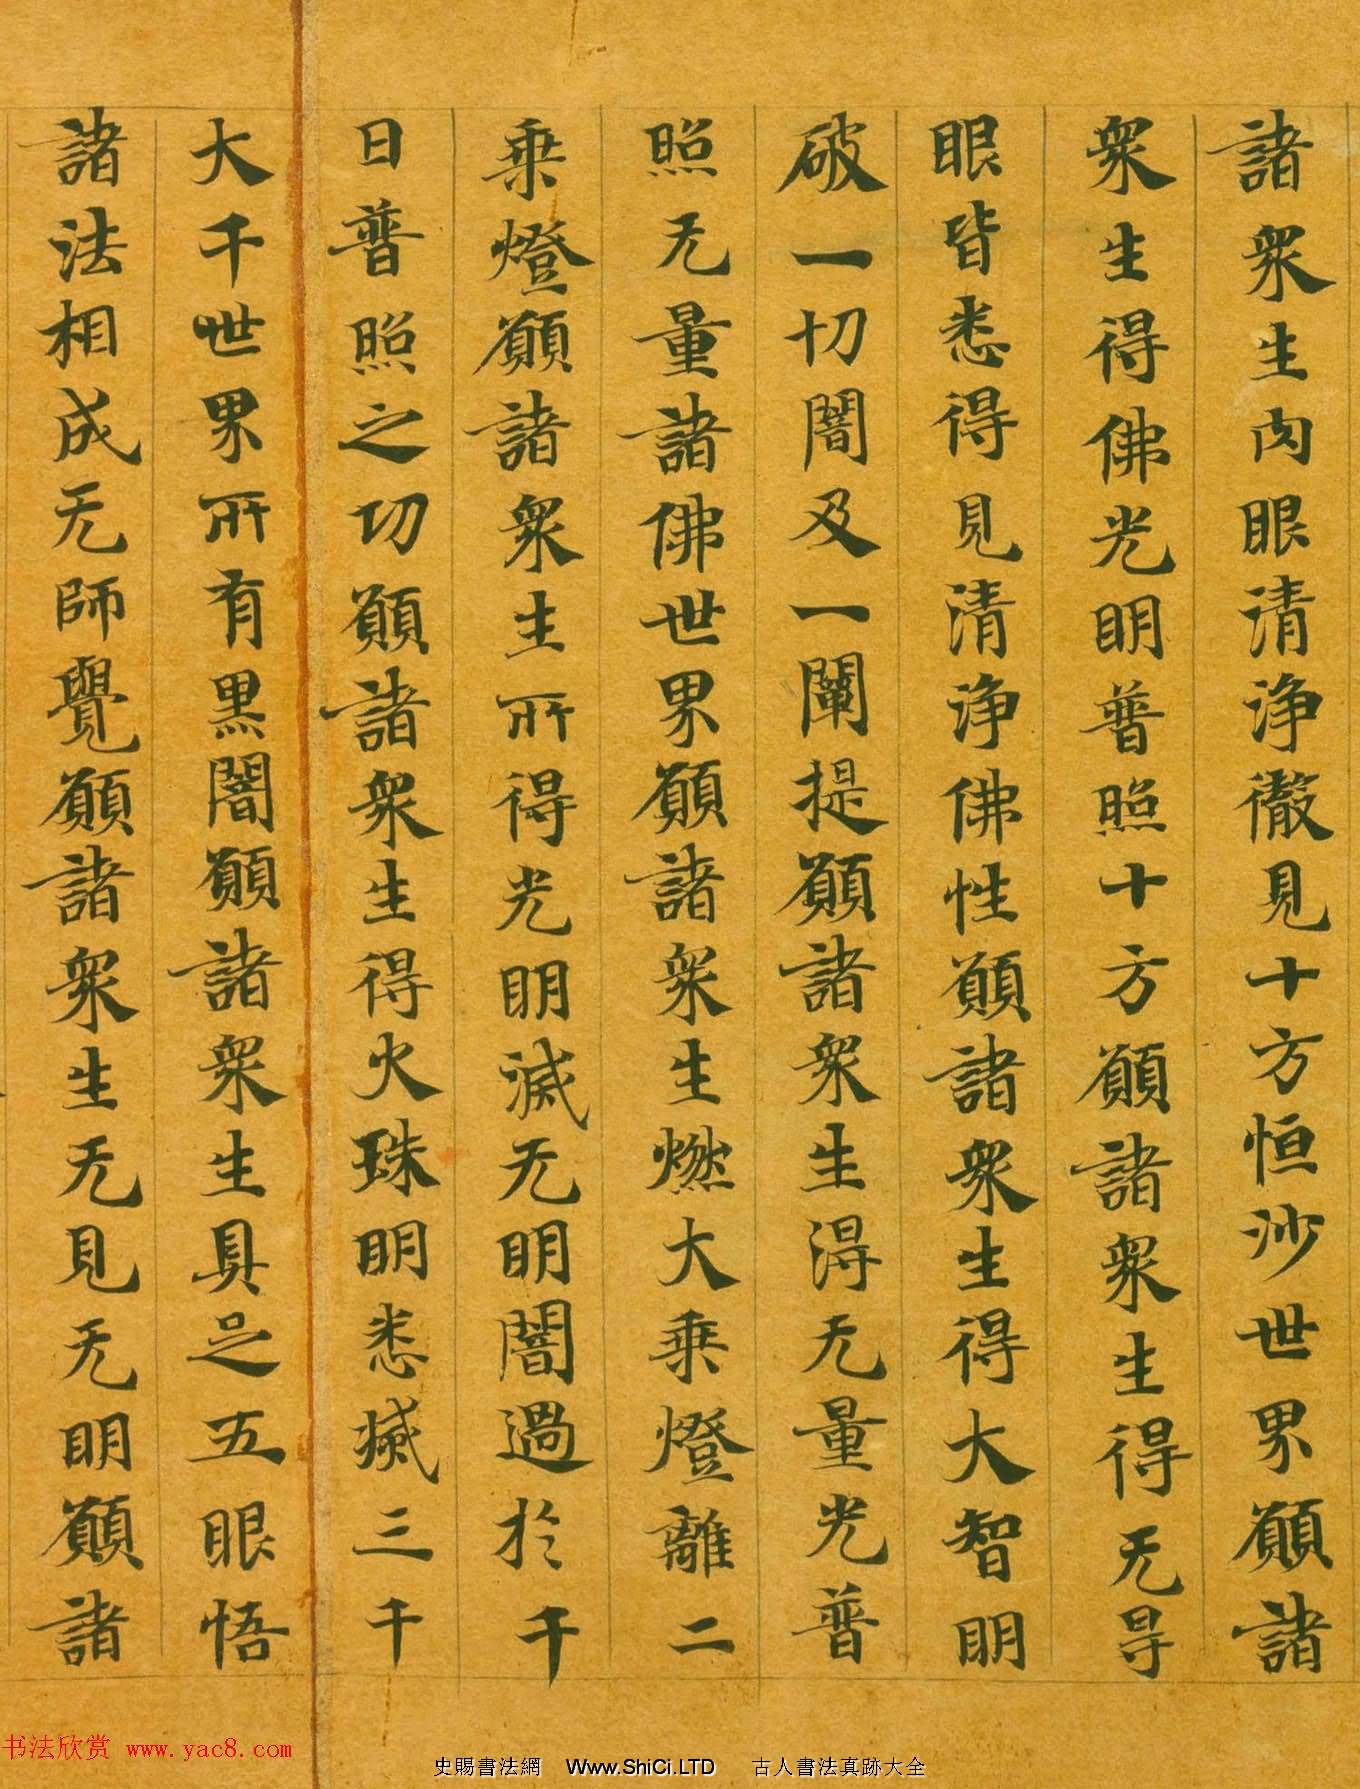 諸衆生肉眼清淨徹見十方恒沙世界願諸
衆生得佛光明普照十方願諸衆生得无㝵
眼皆悉得見清淨佛性願諸衆生得大智明
破一切闇及一闡提願諸衆生得无量光普
照无量諸佛世界願諸衆生燃大乘燈離二
乘燈願諸衆生所得光明滅无明闇過於千
日普照之功願諸衆生得火珠明悉滅三千
大千世界所有黑闇願諸衆生具足五眼悟
諸法相成无師覺願諸衆生无見无明願諸
书法欣赏 www.yac8.com
史賜書法網 Www.ShiCi.LTD 古人書法真跡大全